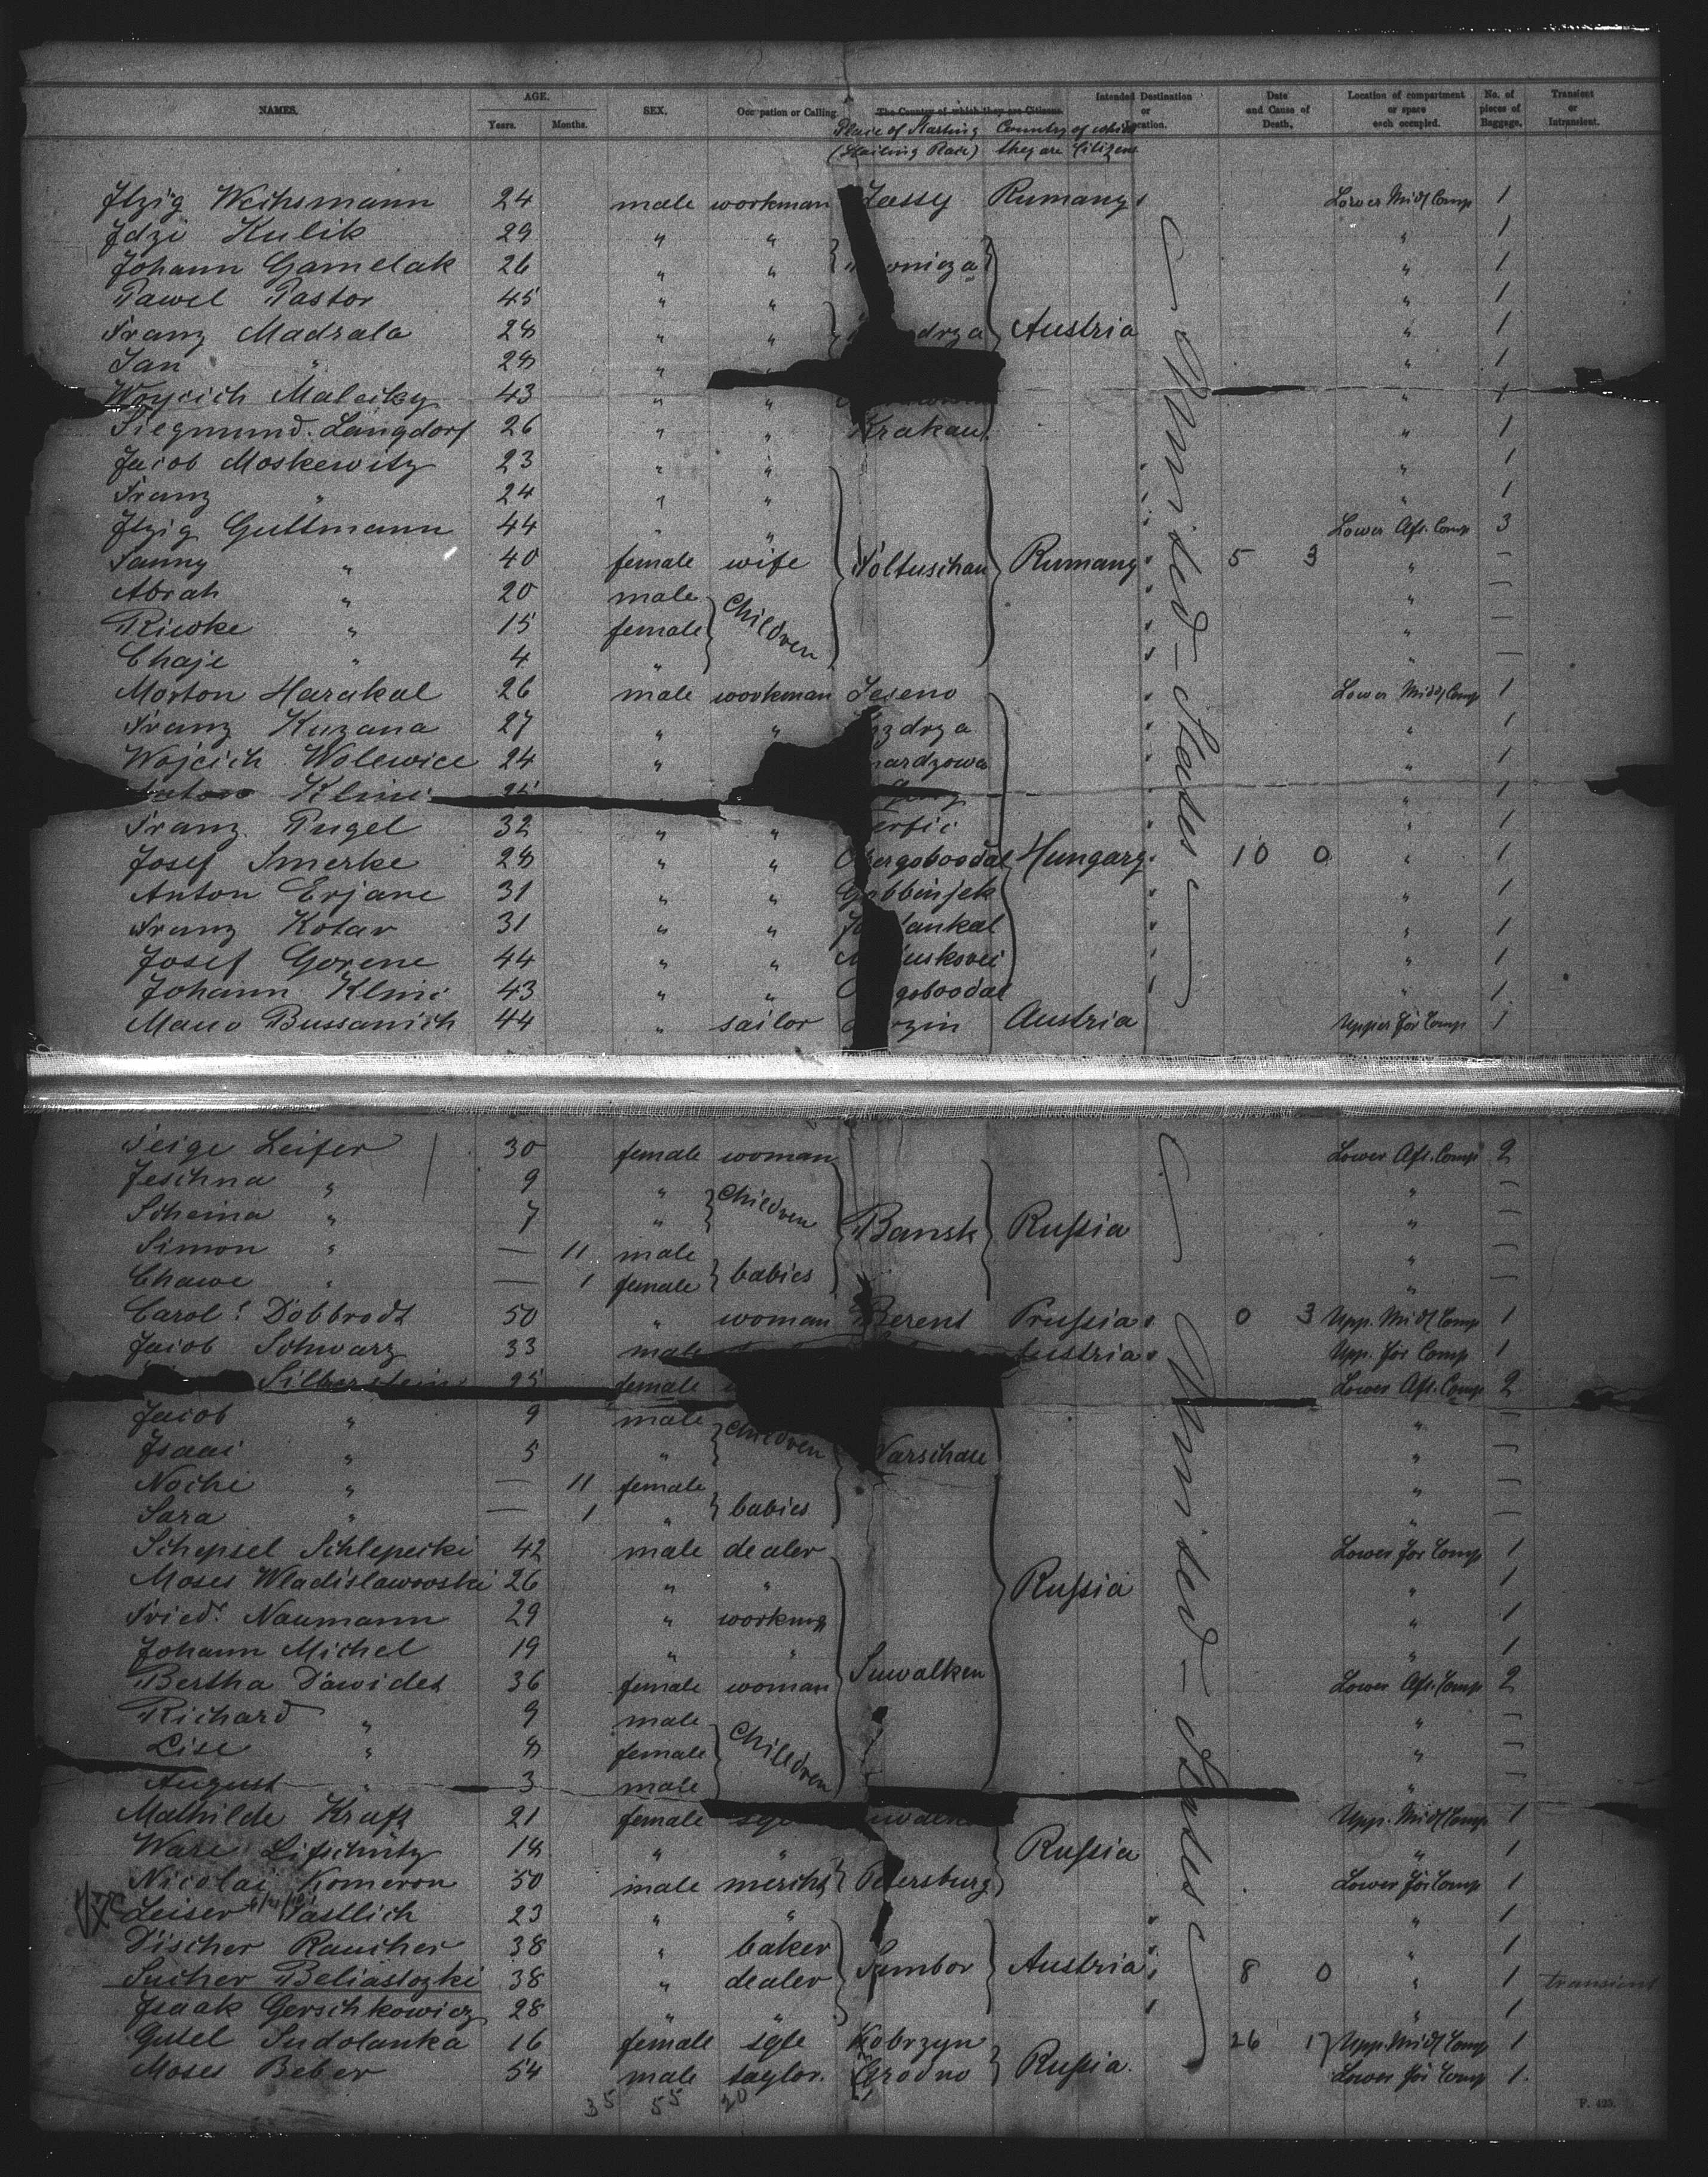 NAMES. AGE. Years. Months. SEX. Occupation or Calling. The Country of which they are Citizens. Intended Destination or Location. Date and Cause of Death. Location of compartment or space each occupied. No. of pieces of Baggage. Transient or Intransient.
Place of Starting (Hailing Place) Country of which they are Citizens
Itzig Weihsmann 24 male workman Jassy Rumany Lower Midl Comp 1
Idzi Kulik 29 " " " 1
Johann Gamelak 26 " " " 1
Pawel Pastor 45 " " " 1
Franz Madrala 28 " " Austria " 1
Jan " 28 " " 1
Woycich Malecky 43 " " " 1
Siegmund Langdorf 26 " " Krakau " 1
Jacob Moskewitz 23 " " " 1
Franz " 24 " " " 1
Itzig Guttmann 44 " " Lower Aft. Comp 3
Fanny " 40 female wife Foltuschan Rumany 5 3 " —
Abrah " 20 male Children " —
Riwke " 15 female " —
Chaje " 4 " " —
Morton Harakal 26 male workman Jeseno Lower Midl Comp 1
Franz Kuzana 27 " " " 1
Wojcich Wolewice 24 " " 1
Klini " 1
Franz Pugel 32 " " " 1
Josef Smerke 28 " " Obergoboodal Hungary 10 0 " 1
Anton Erjane 31 " " " 1
Franz Kotar 31 " " " 1
Josef Gorene 44 " " " 1
Johann Klini 43 " " " 1
Bussanich 44 " sailor Austria Upper For Comp 1
United-States
Feige Leifer 30 female woman Lower Aft. Comp 2
Jeschna " 9 " Children " —
Scheina " 7 " Bansk Russia " —
Simon " — 11 male " —
Chawe " — 1 female babies " —
Carol. Dobbrodt 50 " woman Berent Prussia 0 3 Upp. Midl Comp 1
Jacob Schwarz 33 male Austria Upp. For Comp 1
Silberstein 25 female Lower Aft. Comp 2
Jacob " 9 male Children " —
Isaac " 5 " Warschau " —
Nochi " — 11 female " —
Sara " — 1 " babies " —
Schepsel Schlepecki 42 male dealer Lower For Comp 1
Moses Wladislawowski 26 " " Russia " 1
Fried. Naumann 29 " workmg " 1
Johann Michel 19 " " " 1
Bertha Dawidet 36 female woman Suwalken Lower Aft. Comp 2
Richard " 9 male Children " —
Lise " 8 female " —
August " 3 male " —
Mathilde Kraft 21 female sgle Upp. Midl Comp 1
Lifschitz 18 " " Russia " 1
Nicolai Komeron 50 male mercht Petersburg Lower For Comp 1
Leiser Pastlich 23 " " " 1
Discher Raucher 38 " baker " 1
Sucher Beliastozki 38 " dealer Sambor Austria 8 0 " 1 transient
Isaak Gerschkowicz 28 " " " 1
Gittel Sudolanka 16 female sgle Kobrzyn 26 17 Upp. Midl Comp 1
Moses Beber 54 male taylor. Grodno Russia. Lower For Comp 1
United-States
35 55 20
F. 425.